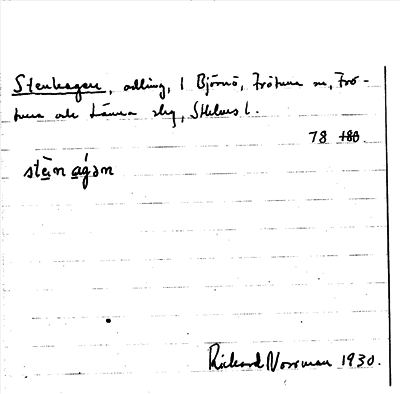 Stenhagen, odling, 1 Björnö, Frötuna sn, Frö-
tuna och Länna skg, Sthlms l.
78 180.
stèn agən
Rickard Norrman 1930.